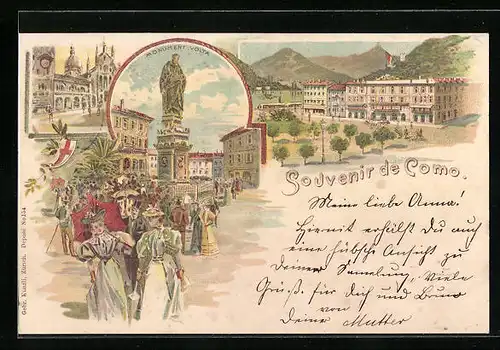 MONUMENT VOLTA
Souvenir de Como.
Meine liebe Anna!
Hiermit erhälst Du auch
eine hübsche Ansicht zu
Deiner Samelung, Viele
Grüße für dich und Bruno
von
Deine Mutter
Gebr. Künzli, Zürich. Deposé No.